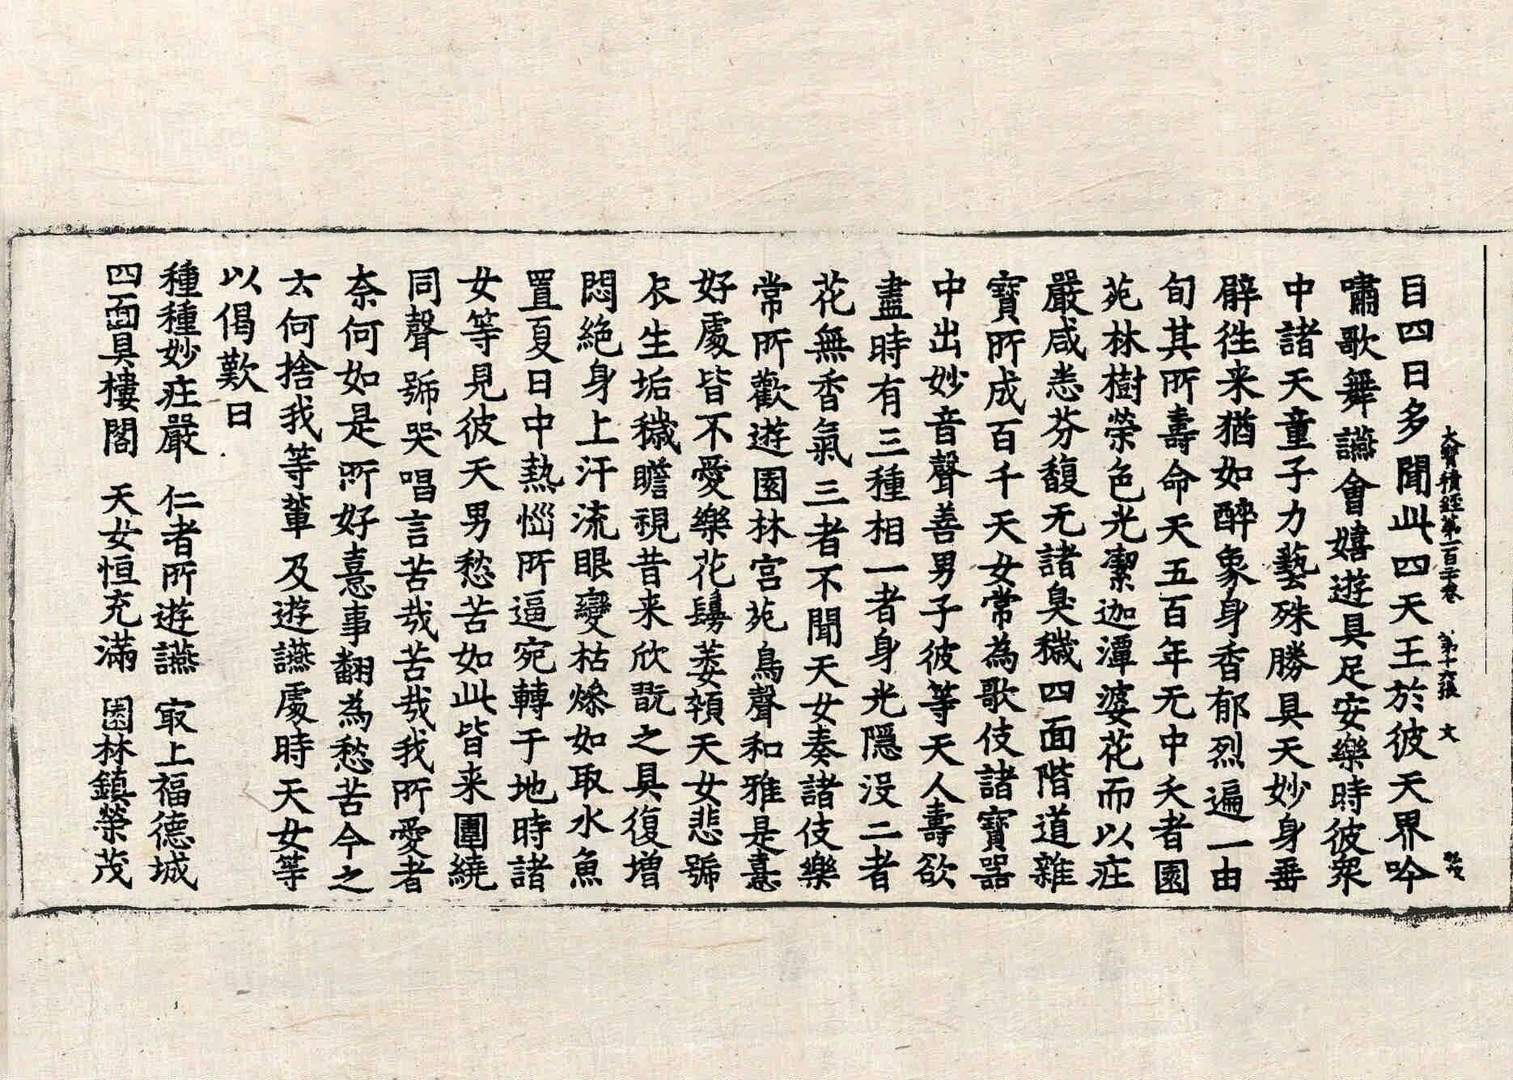 大寶積經第一百二十卷 第十六張 文
目四曰多聞此四天王於彼天界吟
嘯歌舞讌會嬉遊具足安樂時彼衆
中諸天童子力藝殊勝具天妙身垂
臂徃来猶如醉象身香郁烈遍一由
旬其所壽命天五百年无中夭者園
苑林樹榮色光潔迦潭婆花而以庄
嚴咸悉芬馥无諸臭穢四面階道雜
寶所成百千天女常為歌伎諸寶器
中出妙音聲善男子彼等天人壽欲
盡時有三種相一者身光隱沒二者
花無香氣三者不聞天女奏諸伎樂
常所歡遊園林宮苑鳥聲和雅是意
好處皆不愛樂花鬘萎顇天女悲號
衣生垢穢瞻視昔来欣翫之具復增
悶絶身上汗流眼變枯燥如取水魚
置夏日中熱惱所逼宛轉于地時諸
女等見彼天男愁苦如此皆来圍繞
同聲號哭唱言苦哉苦哉我所愛者
奈何如是所好意事翻為愁苦今之
去何捨我等輩及遊讌處時天女等
以偈歎曰
種種妙庄嚴 仁者所遊讌 冣上福德城
四面具樓閣 天女恒充滿 園林鎮榮茂